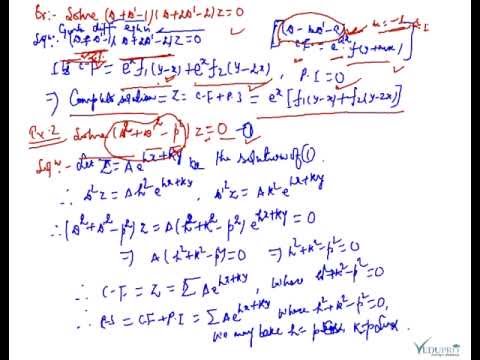 Ex:- Solve (D+D'-1)(D+2D'-2)z=0
Solⁿ:- Given diff eqn is
(D+D'-1)(D+2D'-2)z=0
(D-mD'-a)
m=-1
a=1
C.F = e^{ax} f(y+mx)
C.F = e^x f₁(y-x)+e^{x} f₂(y-2x) , P.I=0
⇒ Complete solution = Z = C.F+P.I = e^x[f₁(y-x)+f₂(y-2x)]
Ex.2 Solve (D²+D'²-p²) z=0 -①
Solⁿ:- Let Z=Ae^{hx+ky} be the solution of ①.
∴ D²z=Ah²e^{hx+ky} , D'²z=Ak²e^{hx+ky}
∴ (D²+D'²-p²)z=A(h²+k²-p²)e^{hx+ky}=0
⇒ A(h²+k²-p²)=0 ⇒ h²+k²-p²=0
∴ C.F. = Z = ΣAe^{hx+ky}, where h²+k²-p²=0
∴ C.S = C.F+P.I = ΣAe^{hx+ky} where h²+k²-p²=0,
we may take h=p k=p
VEDUPRO